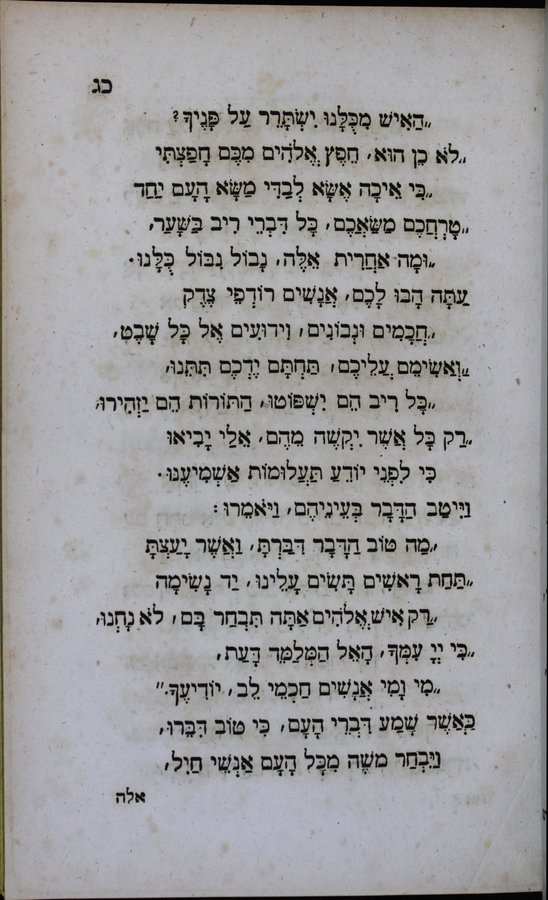 כג
„הַאִישׁ מִכֻּלָּנוּ יִשְׂתָּרֵר עַל פָּנֶיךָ?
„לֹא כֵן הוּא, חֵפֶץ אֱלֹהִים מִכֶּם חָפַצְתִּי
„כִּי אֵיכָה אֶשָּׂא לְבַדִּי מַשָּׂא הָעָם יַחַד
„טָרְחֲכֶם מַשַּׂאֲכֶם, כָּל דִּבְרֵי רִיב בַּשָּׁעַר,
„וּמָה אַחֲרִית אֵלֶּה, נָבוֹל נִבּוֹל כֻּלָּנוּ.
עַתָּה הָבוּ לָכֶם, אֲנָשִׁים רוֹדְפֵי צֶדֶק
„חֲכָמִים וּנְבוֹנִים, וִידוּעִים אֶל כָּל שָׁבֶט,
„וַאֲשִׂימֵם עֲלֵיכֶם, תַּחְתָּם יֶדְכֶם תִּתֵּנוּ,
„כָּל רִיב הֵם יִשְׁפּוֹטוּ, הַתּוֹרוֹת הֵם יַזְהִירוּ,
„רַק כָּל אֲשֶׁר יִקְשֶׁה מֵהֶם, אֵלַי יָבִיאוּ
כִּי לִפְנֵי יוֹדֵעַ תַּעֲלוּמוֹת אַשְׁמִיעֶנּוּ.
וַיִּיטַב הַדָּבָר בְּעֵינֵיהֶם, וַיֹּאמֵרוּ:
„מַה טוֹב הַדָּבָר דִּבַּרְתָּ, וַאֲשֶׁר יָעַצְתָּ
„תַּחַת רָאשִׁים תָּשִׂים עָלֵינוּ, יַד נָשִׂימָה
„רַק אִישׁ אֱלֹהִים אַתָּה תִּבְחַר בָּם, לֹא נָחְנוּ,
„כִּי יְיָ עִמְּךָ, הָאֵל הַמְלַמֵּד דָּעַת,
„מִי וָמִי אֲנָשִׁים חַכְמֵי לֵב, יוֹדִיעֶךָ."
כַּאֲשֶׁר שָׁמַע דִּבְרֵי הָעָם, כִּי טוֹב דִּבֵּרוּ,
וַיִּבְחַר משֶׁה מִכָּל הָעָם אַנְשֵׁי חַיִל,
אלה